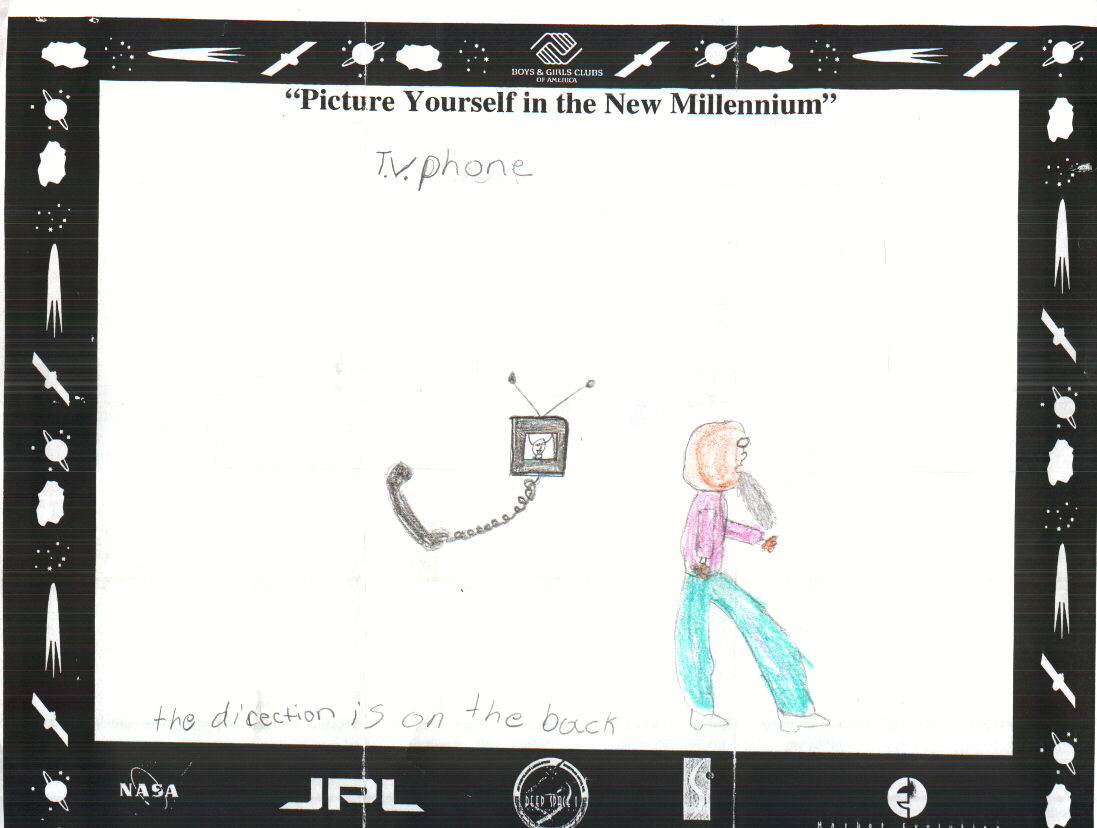 BOYS & GIRLS CLUBS
OF AMERICA
“Picture Yourself in the New Millennium”
T.V. phone
the direction is on the back
NASA
JPL
DEEP SPACE 1
Market Evolution